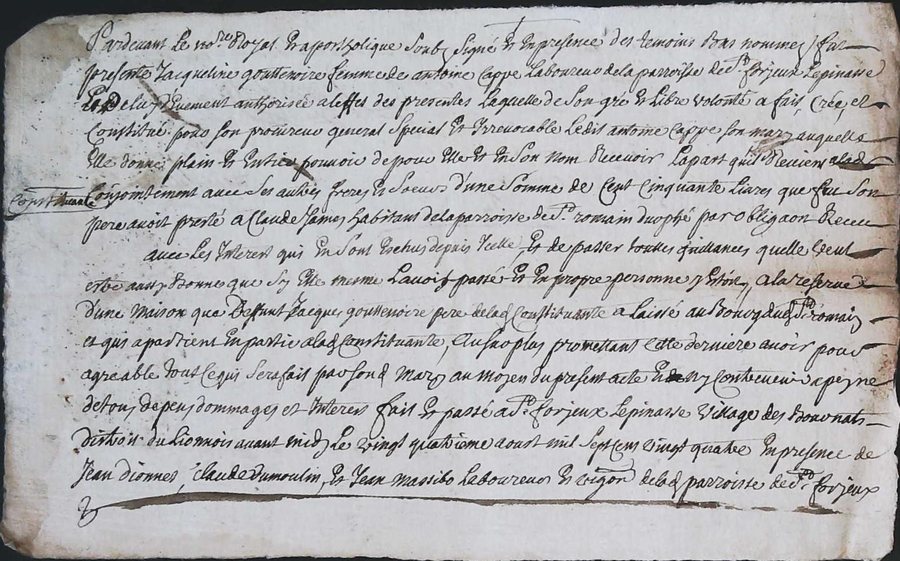 Pardevant Le no.re Royal Et apostholique soubsigné Et En presence des temoins Bas nommez, fut
presente Jacqueline gouttenoire femme de antoine Cappe Laboureur de la parroisse de St. forjeux Lepinasse
de luy deuement authorisée a leffet des presentes Laquelle de Son gré et Libre volonté a fait, Créé, et
Constitué pour son procureur general Special Et Irrevocable Ledit antoine Cappe son mary auquel
Elle donne plain Et Entier pouvoir de pour Elle Et En Son nom Recevoir La part qui Revient a lad.
Constituante
Conjointement avec Ses autres freres Et Soeurs d'une Somme de Cent Cinquante Livres que feu Son
pere avoit presté a Claude James habitant de la parroisse de St. romain par obligaon Receu
avec Les Interest qui En Sont Eschus depuis Icelle, Et de passer toutes quittances quelle veut
estre aussy Bonnes que Sy Elle mesme Lavoit passé Et En propre personne y Estoit, a la reserve
D'une Maison que Deffunt Jacques gouttenoire pere de lad. Constituante a Laissé au Bourg dud. St. romain
et qui apartient En partie a lad. Constituante, promettant Cette derniere avoir pour
agreable tout Ce qui Sera fait par Son d. Mary au moyen du present acte Et ny Contrevenir a peyne
de tous depens dommages et Interest fait Et passé a St. forjeux Lepinasse village des Bonnats
du Lionnois avant midy Le vingt quatrieme aoust mil Sept Cens vingt quatre En presence de
Jean Dionnet, Claude Dumoulin, Et Jean Massibo Laboureur Et vigon de lad. parroisse de St. forjeux